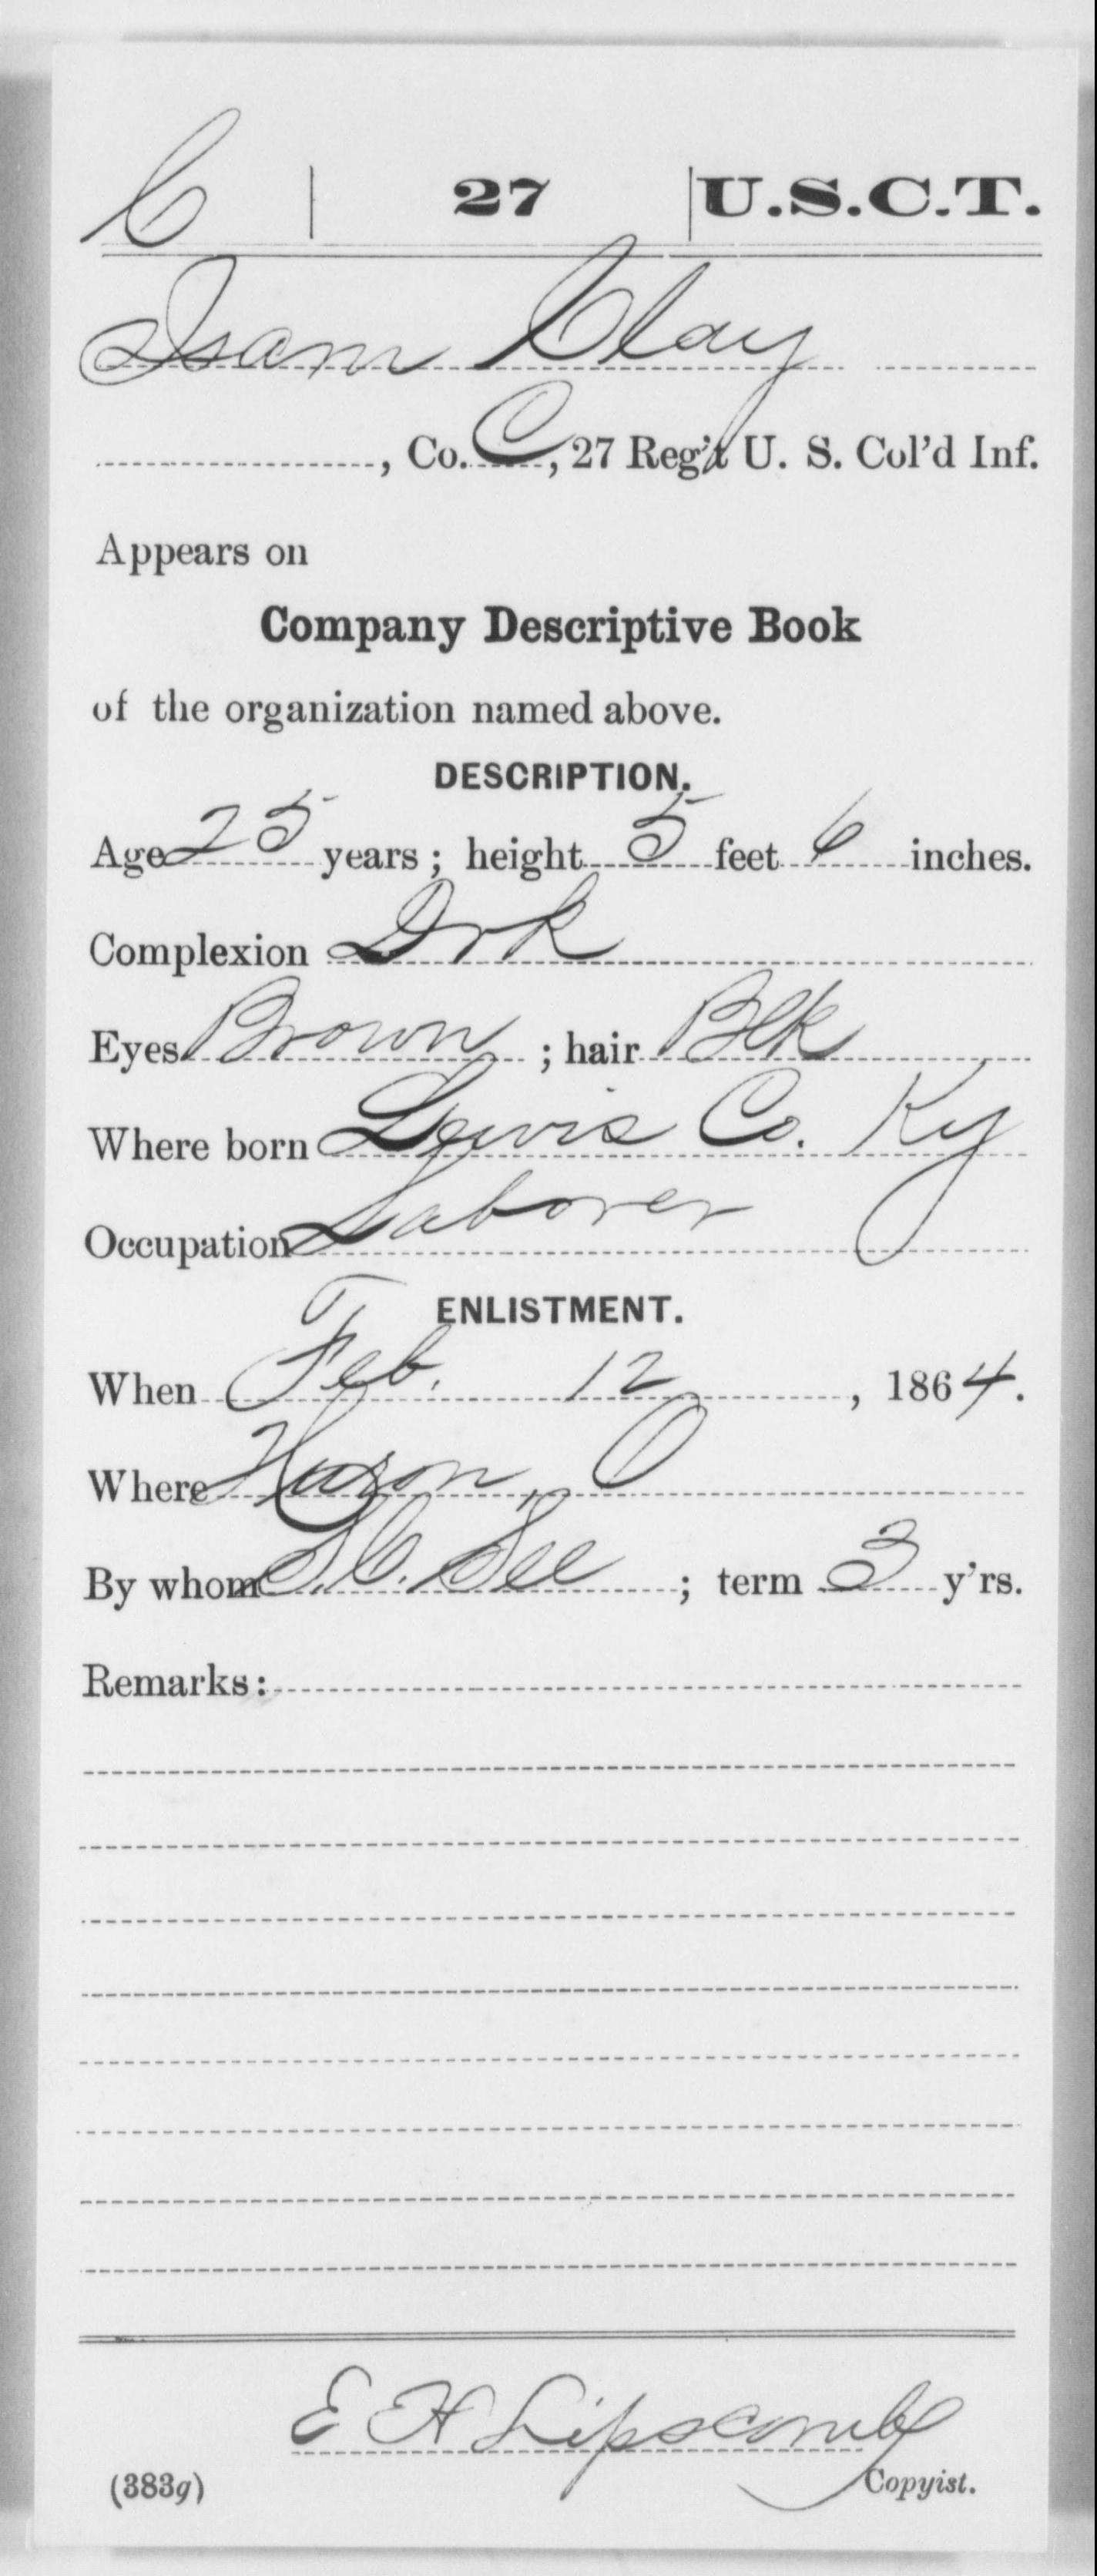 C | 27 | U.S.C.T.
Isam Clay
, Co. C, 27 Reg't U. S. Col'd Inf.
Appears on
Company Descriptive Book
of the organization named above.
DESCRIPTION.
Age 25 years; height 5 feet 6 inches.
Complexion Drk
Eyes Brown ; hair Blk
Where born Lewis Co. Ky
Occupation Laborer
ENLISTMENT.
When Feb. 12, 1864.
Where Huron, O
By whom S.C. See ; term 3 y'rs.
Remarks:
E H Lipscomb
(383g) Copyist.